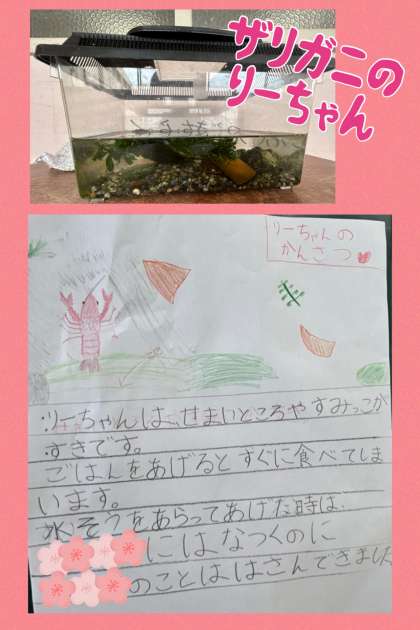 ザリガニの
りーちゃん
りーちゃんの
かんさつ
りーちゃんは、せまいところやすみっこが
すきです。
ごはんをあげるとすぐに食べてしま
います。
水そうをあらってあげた時は、
にはなつくのに
のことははさんできました